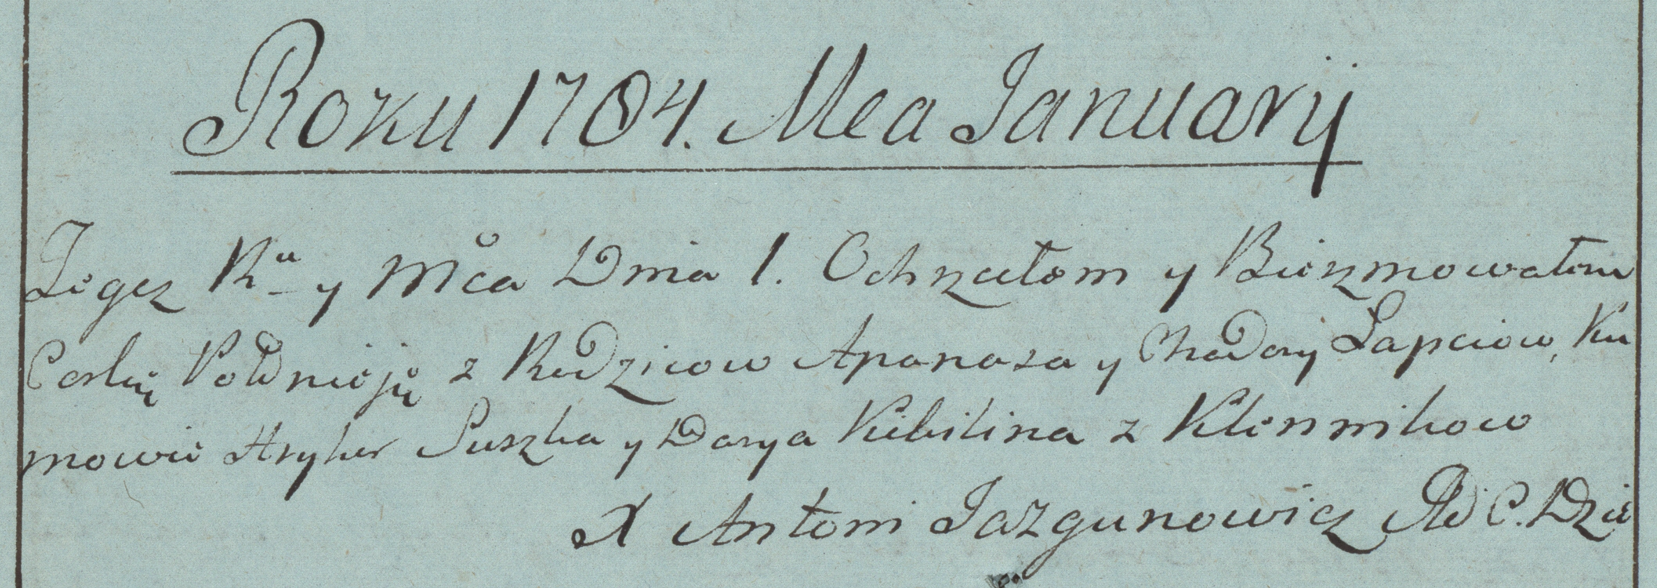 Roku 1784. Mca Januarij
Tegoz Ru y Mca Dnia 1. Ochrzciłom y Bierzmowałem
Corkę z Rodzicow Apanasa y Chadory Łapciow, Ku
mowie Hryhor Suszka y Darya Kibilina z Klennikow
X Antoni Jazgunowicz C. Dzie